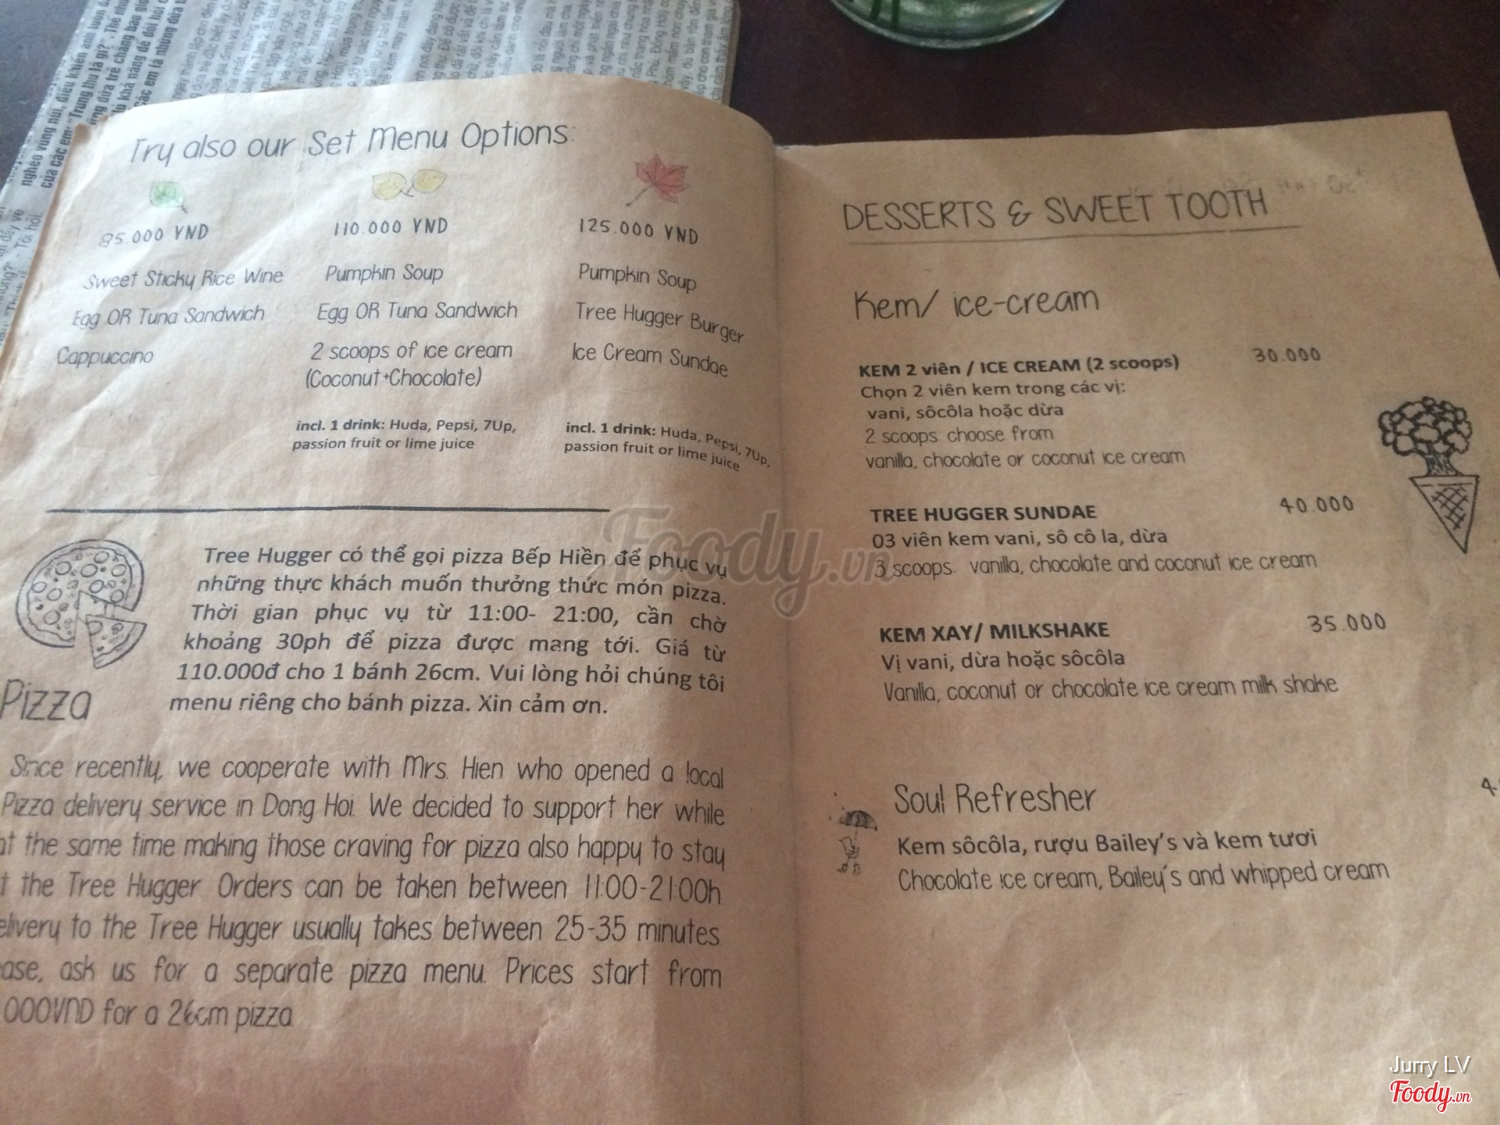 Try also our Set Menu Options:
85.000 VND
Sweet Sticky Rice Wine
Egg OR Tuna Sandwich
Cappuccino
110.000 VND
Pumpkin Soup
Egg OR Tuna Sandwich
2 scoops of ice cream
(Coconut+Chocolate)
incl. 1 drink: Huda, Pepsi, 7Up,
passion fruit or lime juice
125.000 VND
Pumpkin Soup
Tree Hugger Burger
Ice Cream Sundae
incl. 1 drink: Huda, Pepsi, 7Up,
passion fruit or lime juice
Pizza
Tree Hugger có thể gọi pizza Bếp Hiền để phục vụ
những thực khách muốn thưởng thức món pizza.
Thời gian phục vụ từ 11:00- 21:00, cần chờ
khoảng 30ph để pizza được mang tới. Giá từ
110.000đ cho 1 bánh 26cm. Vui lòng hỏi chúng tôi
menu riêng cho bánh pizza. Xin cảm ơn.
Since recently, we cooperate with Mrs. Hien who opened a local
Pizza delivery service in Dong Hoi. We decided to support her while
at the same time making those craving for pizza also happy to stay
the Tree Hugger. Orders can be taken between 11:00-21:00h
to the Tree Hugger usually takes between 25-35 minutes
ask us for a separate pizza menu. Prices start from
000VND for a 26cm pizza
DESSERTS & SWEET TOOTH
Kem/ ice-cream
KEM 2 viên / ICE CREAM (2 scoops) 30.000
Chọn 2 viên kem trong các vị:
vani, sôcôla hoặc dừa
2 scoops: choose from
vanilla, chocolate or coconut ice cream
TREE HUGGER SUNDAE 40.000
03 viên kem vani, sô cô la, dừa
3 scoops: vanilla, chocolate and coconut ice cream
KEM XAY/ MILKSHAKE 35.000
Vị vani, dừa hoặc sôcôla
Vanilla, coconut or chocolate ice cream milk shake
Soul Refresher
Kem sôcôla, rượu Bailey's và kem tươi
Chocolate ice cream, Bailey's and whipped cream
Foody.vn
Jurry LV
Foody.vn